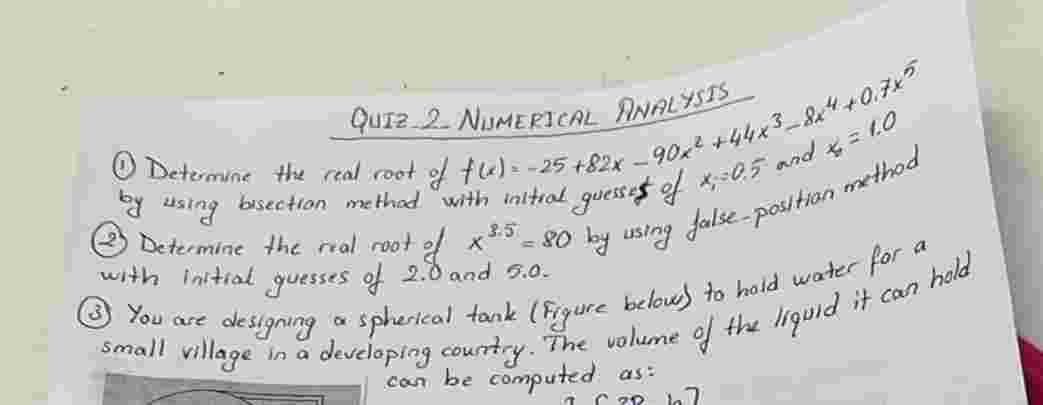 QUIZ-2- NUMERICAL ANALYSIS
① Determine the real root of f(x) = -25 + 82x - 90x² + 44x³ - 8x⁴ + 0.7x⁵
by using bisection method with initial guesses of xₗ=0.5 and xᵤ = 1.0
② Determine the real root of x³·⁵ = 80 by using false-position method
with initial guesses of 2.0 and 5.0.
③ You are designing a spherical tank (Figure below) to hold water for a
small village in a developing country. The volume of the liquid it can hold
can be computed as: